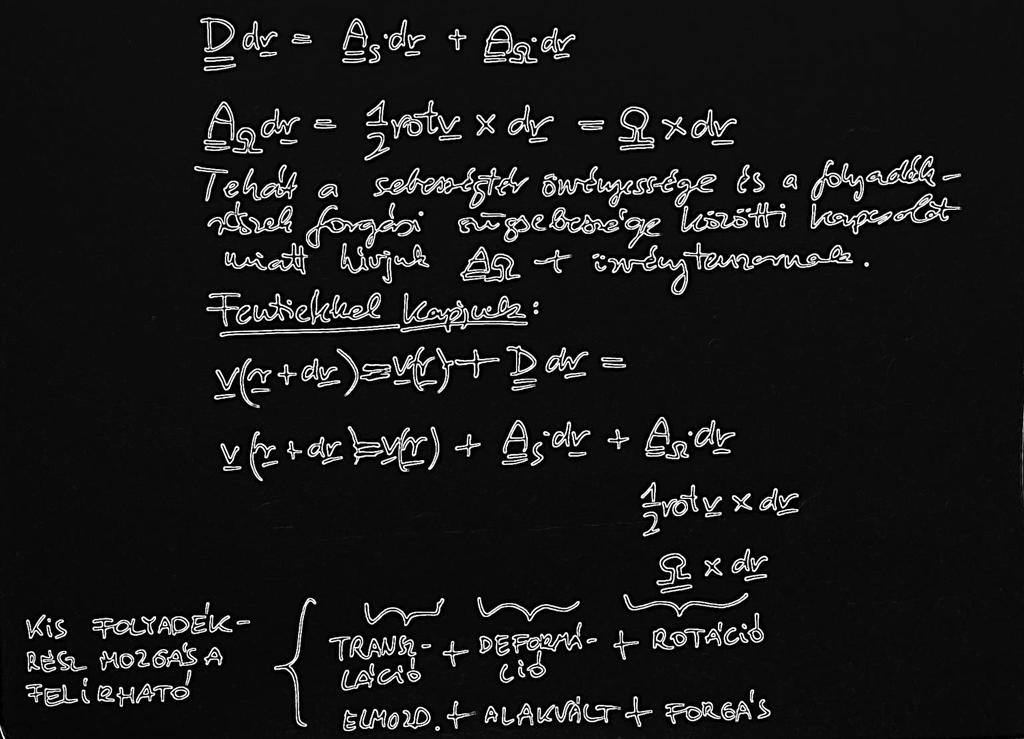 D dr = A_S·dr + A_Ω·dr
A_Ω dr = 1/2 rot v × dr = Ω × dr
Tehát a sebességtér örvényessége és a folyadék-
részek forgási szögsebessége közötti kapcsolat
miatt hívjuk A_Ω-t örvénytenzornak.
Fentiekkel kapjuk:
v(r+dr)=v(r)+ D dr =
v(r+dr)=v(r) + A_S·dr + A_Ω·dr
1/2 rot v × dr
Ω × dr
KIS FOLYADÉK-
RÉSZ MOZGÁSA
FELÍRHATÓ
TRANSZ- + DEFORMÁ- + ROTÁCIÓ
LÁCIÓ CIÓ
ELMOZD. + ALAKVÁLT + FORGÁS